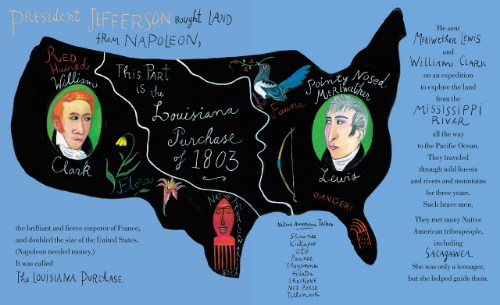 PRESIDENT JEFFERSON BOUGHT LAND
from NAPOLEON,
the brilliant and fierce emperor of France,
and doubled the size of the United States.
(Napoleon needed money.)
It was called
The LOUISIANA PURCHASE.
RED
Haired
William
Clark
This Part
is the
Louisiana
Purchase
of 1803
Flora
Fauna
Pointy Nosed
Meriwether
Lewis
DANGER!
Native American Tribes
Shawnee
Kickapoo
Oto
Pawnee
Cheyenne
Hidatsa
Shoshone
Nez Perce
Tillamook
He sent
MERIWETHER LEWIS
and
WILLIAM CLARK
on an expedition
to explore the land
from the
MISSISSIPPI
RIVER
all the way
to the Pacific Ocean.
They traveled
through wild forests
and rivers and mountains
for three years.
Such brave men.
They met many Native
American tribespeople,
including
SACAGAWEA.
She was only a teenager,
but she helped guide them.